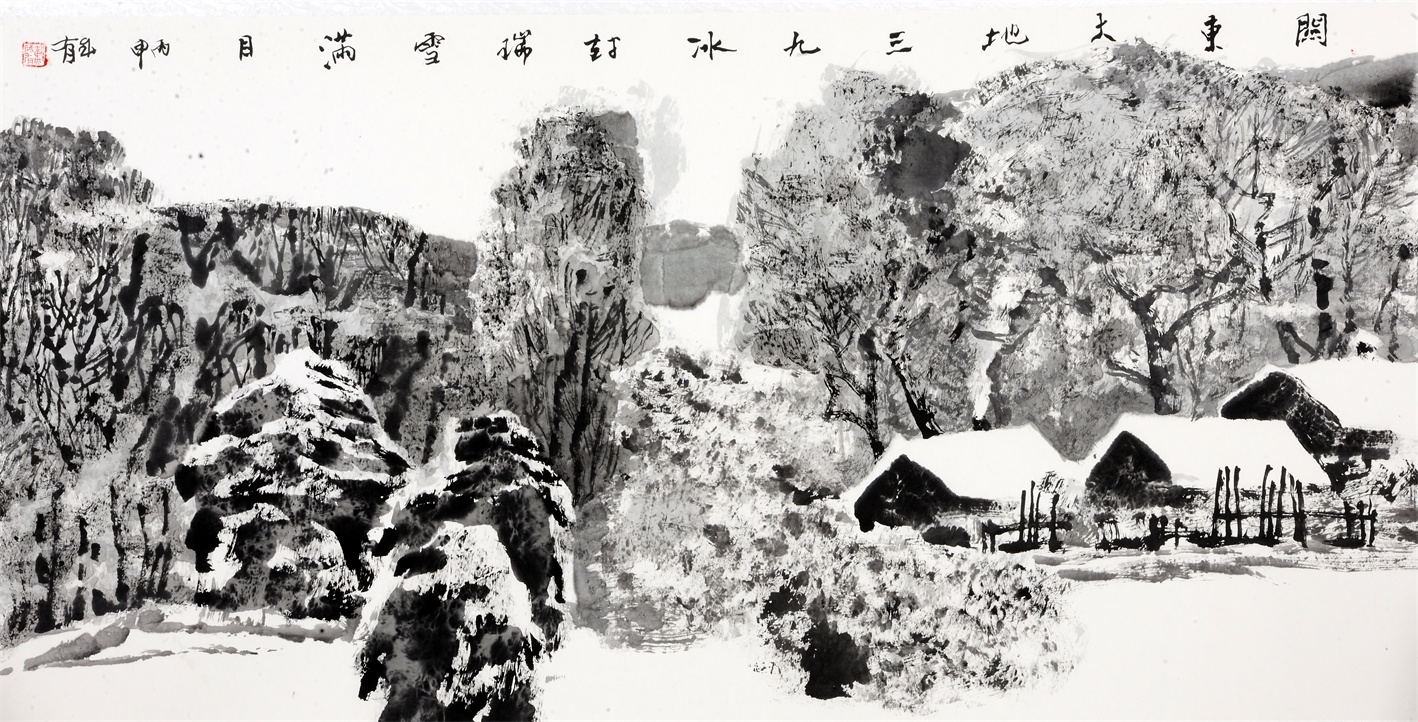 關東大地三九冰封瑞雪滿目丙申有